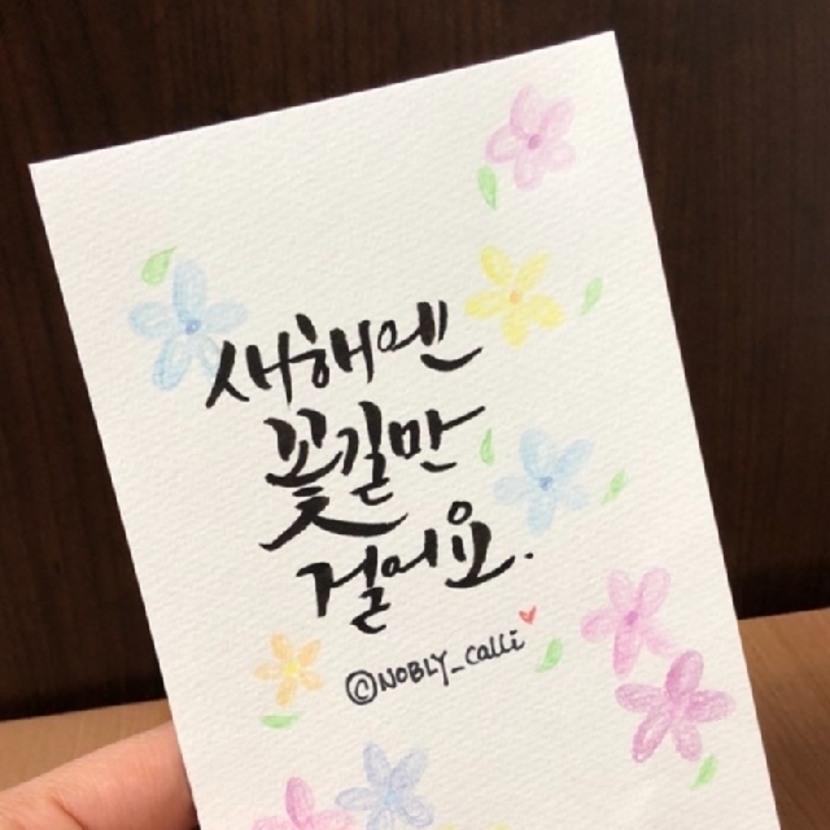 새해엔
꽃길만
걸어요.
©NOBLY_calli